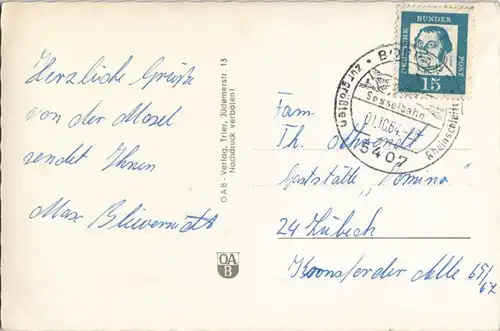 Herzliche Grüße
von der Mosel
sendet Ihnen
Max
OAB - Verlag, Trier, Jüdemerstr. 13
Nachdruck verboten!
OA
B
DEUTSCHE
BUNDES
POST
15
zur größten
Sesselbahn
01.10.64-17
Rheinschleife
5407
Fam
Th.
Gaststätte "Domino"
24 Lübeck
Kronsforder Allee 65/
67